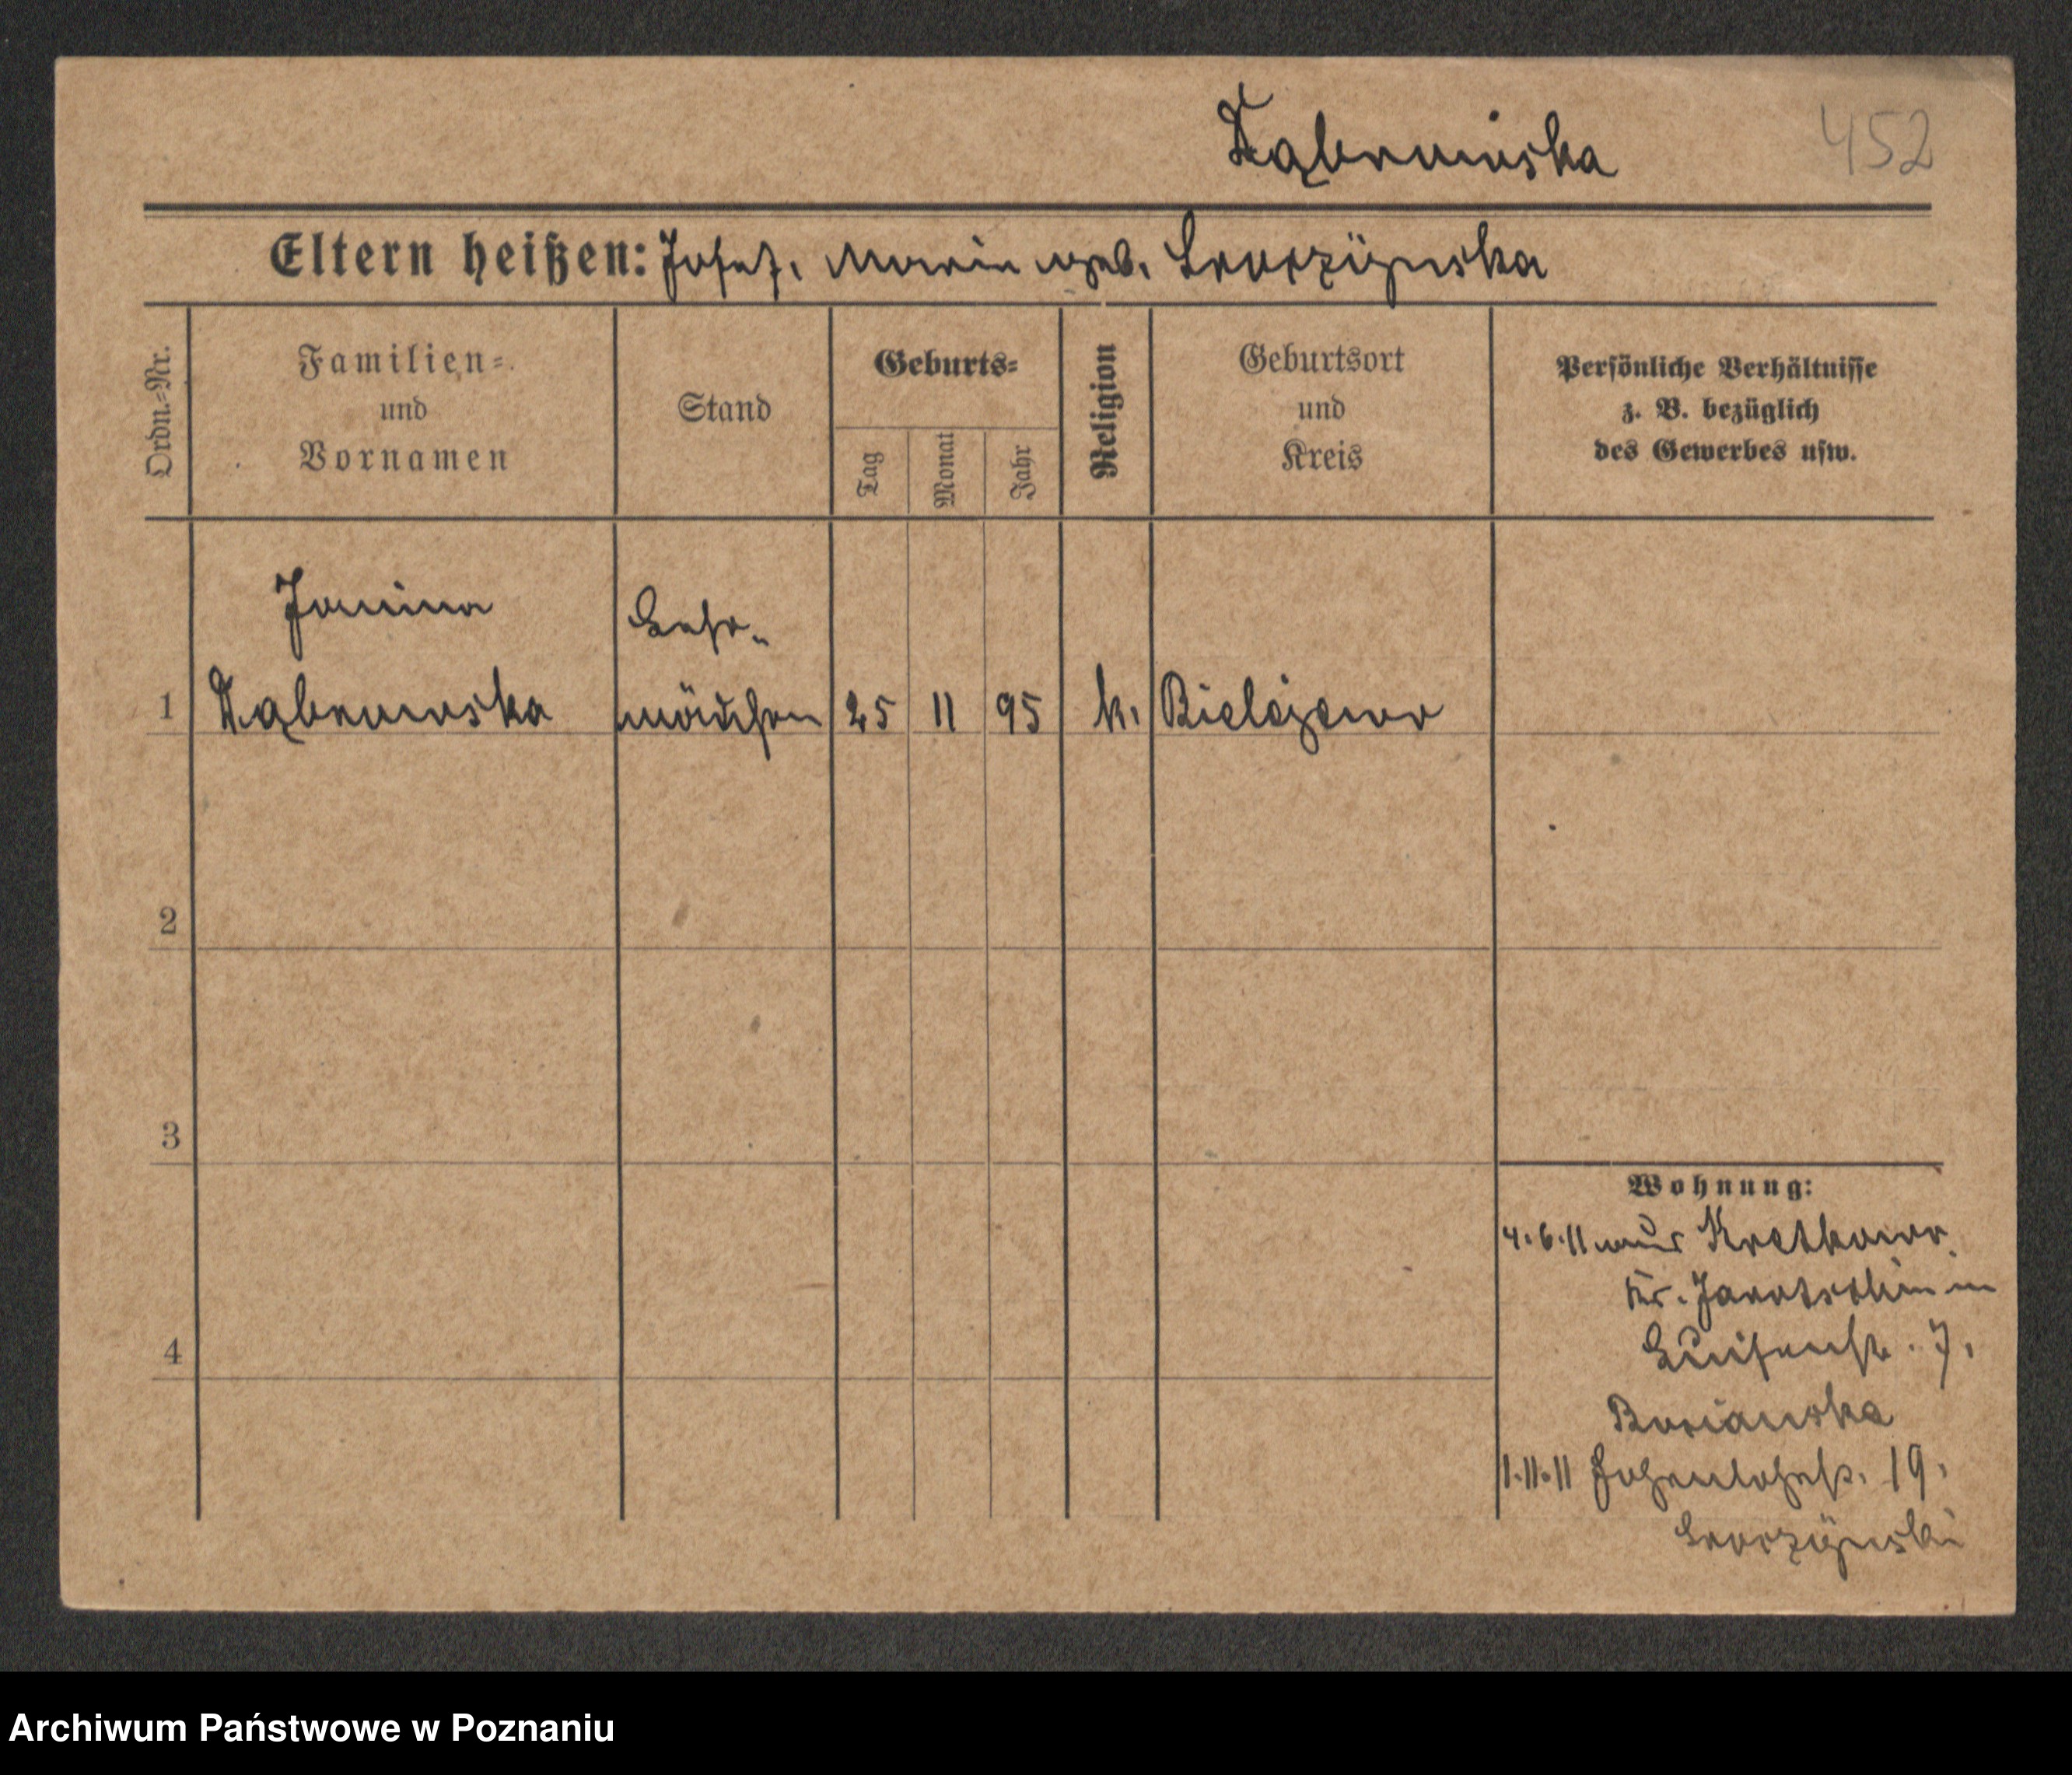 Dąbrowska 452
Eltern heißen: Josef, Maria geb. Skorzýnska
Ordn.-Nr.
Familien-
und
Vornamen
Stand
Geburts-
Tag
Monat
Jahr
Religion
Geburtsort
und
Kreis
Persönliche Verhältnisse
z. B. bezüglich
des Gewerbes usw.
Janina
Dąbrowska
Lehr-
mädchen
1
25 11 95 k. Bielejewo
2
3
4
Wohnung:
4.6.11 aus Kretkowo
Kr. Jarotschin in
Luisenstr. 7.
1.11.11 Hohenlohestr. 19.
Archiwum Państwowe w Poznaniu